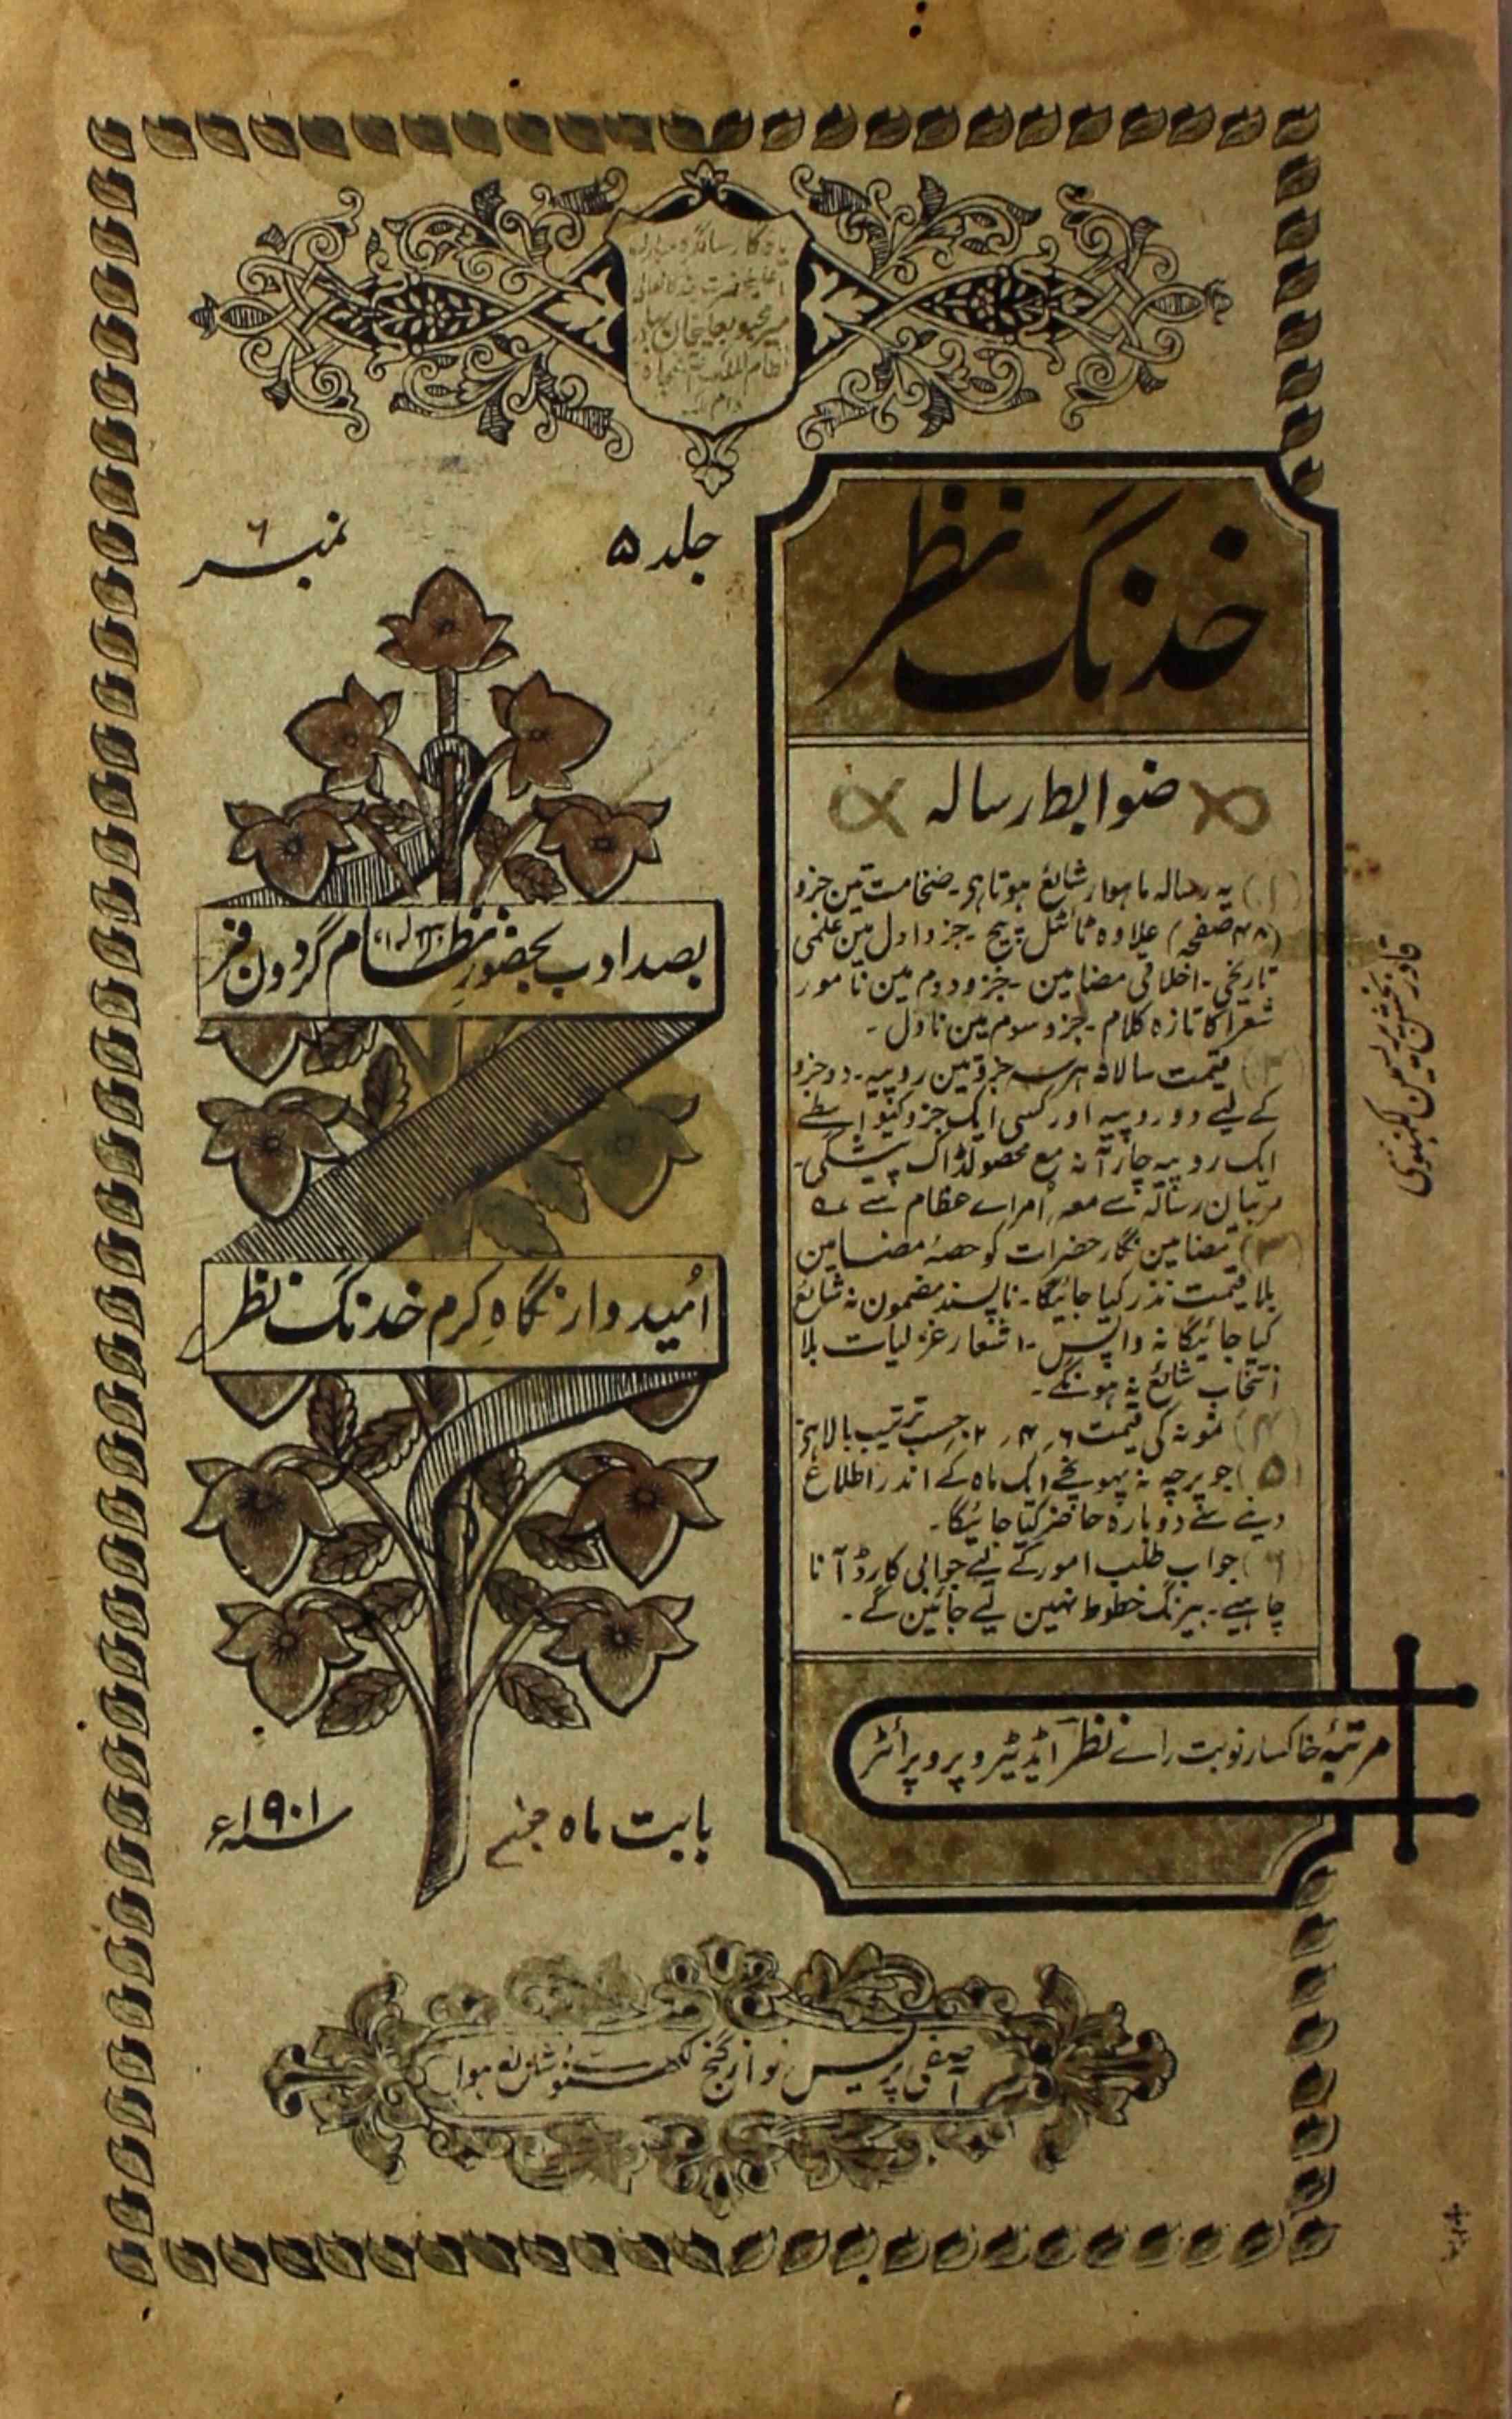 یادگار سالگرہ مبارک
اعلیحضرت بندگانعالی
میر محبوب علیخان بہادر
نظام الملک آصفجاہ
جلد ۵
نمبر ۶
خدنگ نظر
ضوابط رسالہ
(۱) یہ رسالہ ماہوار شائع ہوتا ہی۔ ضخامت تین جزو
(۴۸ صفحہ) علاوہ ٹائٹل پیج۔ جزو اول مین علمی
تاریخی۔ اخلاقی مضامین۔ جزو دوم مین نامور
شعرا کا تازہ کلام۔ جزو سوم مین ناول۔
(۲) قیمت سالانہ ہر سہ جزو تین روپیہ۔ دو جزو
کے لیے دو روپیہ اور کسی ایک جزو کیواسطے
ایک روپیہ چار آنہ مع محصولڈاک پیشگی۔
مربیان رسالہ سے امراے عظام سے
(۳) مضامین نگار حضرات کو حصۂ مضامین
بلا قیمت نذر کیا جائیگا۔ ناپسند مضمون نہ شائع
کیا جائیگا نہ واپس۔ اشعار غزلیات بلا
انتخاب شائع نہ ہونگے۔
(۴) نمونہ کی قیمت ۶؍ ۴؍ ۲؍ حسب ترتیب بالا ہی
(۵) جو پرچہ نہ پہونچے ایک ماہ کے اندر اطلاع
دینے سے دوبارہ حاضر کیا جائیگا۔
(۶) جواب طلب امور کے لیے جوابی کارڈ آنا
چاہیے۔ بیرنگ خطوط نہین لیے جائین گے۔
مرتبۂ خاکسار نوبت راے نظر آڈیٹر و پروپرائٹر
بصد ادب بحضور نظام گردون فر
اُمیدوار نگاہِ کرم خدنگ نظر
بابت ماہ جون
سنہ ۱۹۰۱ء
آصفی پریس نواز گنج لکھنؤ سے شائع ہوا